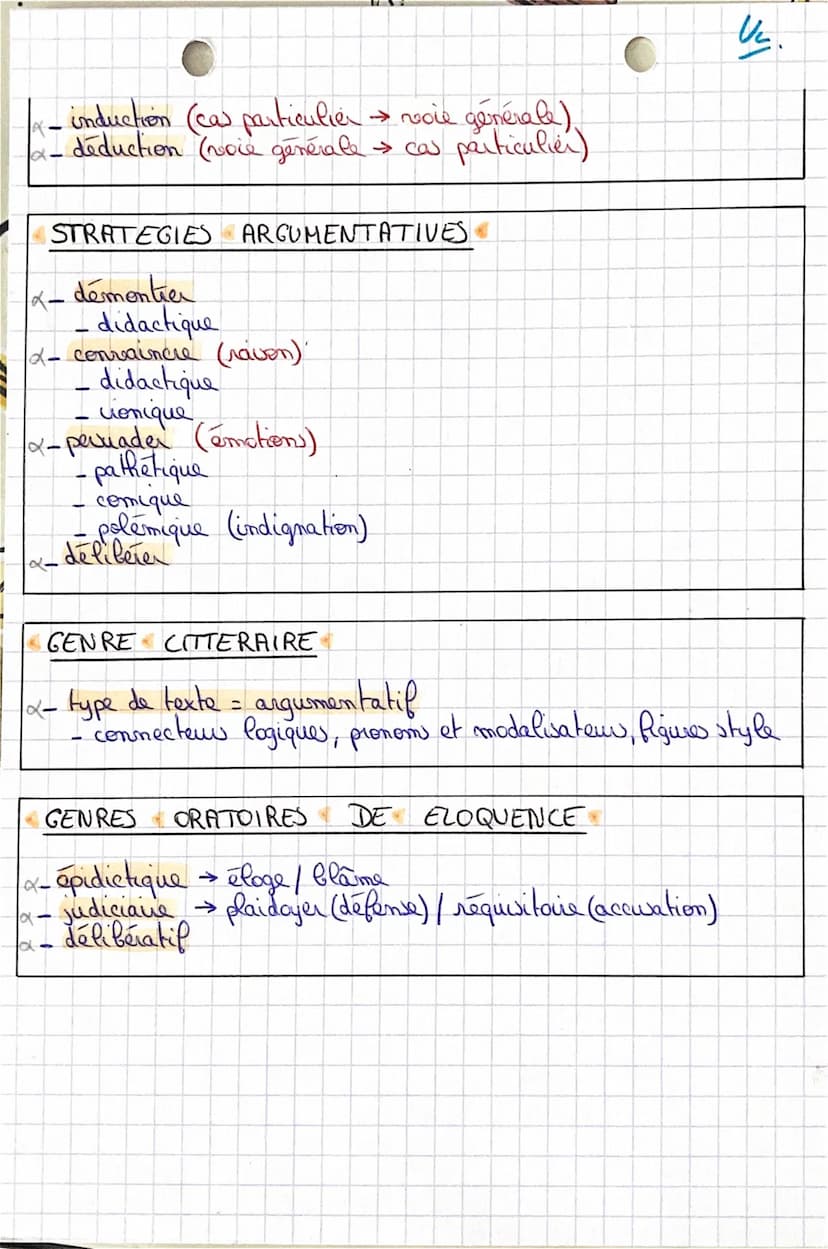 α - induction (cas particulier → voie générale)
α - déduction (voie générale → cas particulier)
STRATEGIES ARGUMENTATIVES
α - démontrer
- didactique
α - convaincre (raison)
- didactique
- ironique
α - persuader (émotions)
- pathétique
- comique
- polémique (indignation)
α - délibérer
GENRE LITTERAIRE
α - type de texte = argumentatif
- connecteurs logiques, pronoms et modalisateurs, figures style
GENRES ORATOIRES DE ELOQUENCE
α - épidictique → éloge / blâme
α - judiciaire → plaidoyer (défense) / réquisitoire (accusation)
α - délibératif